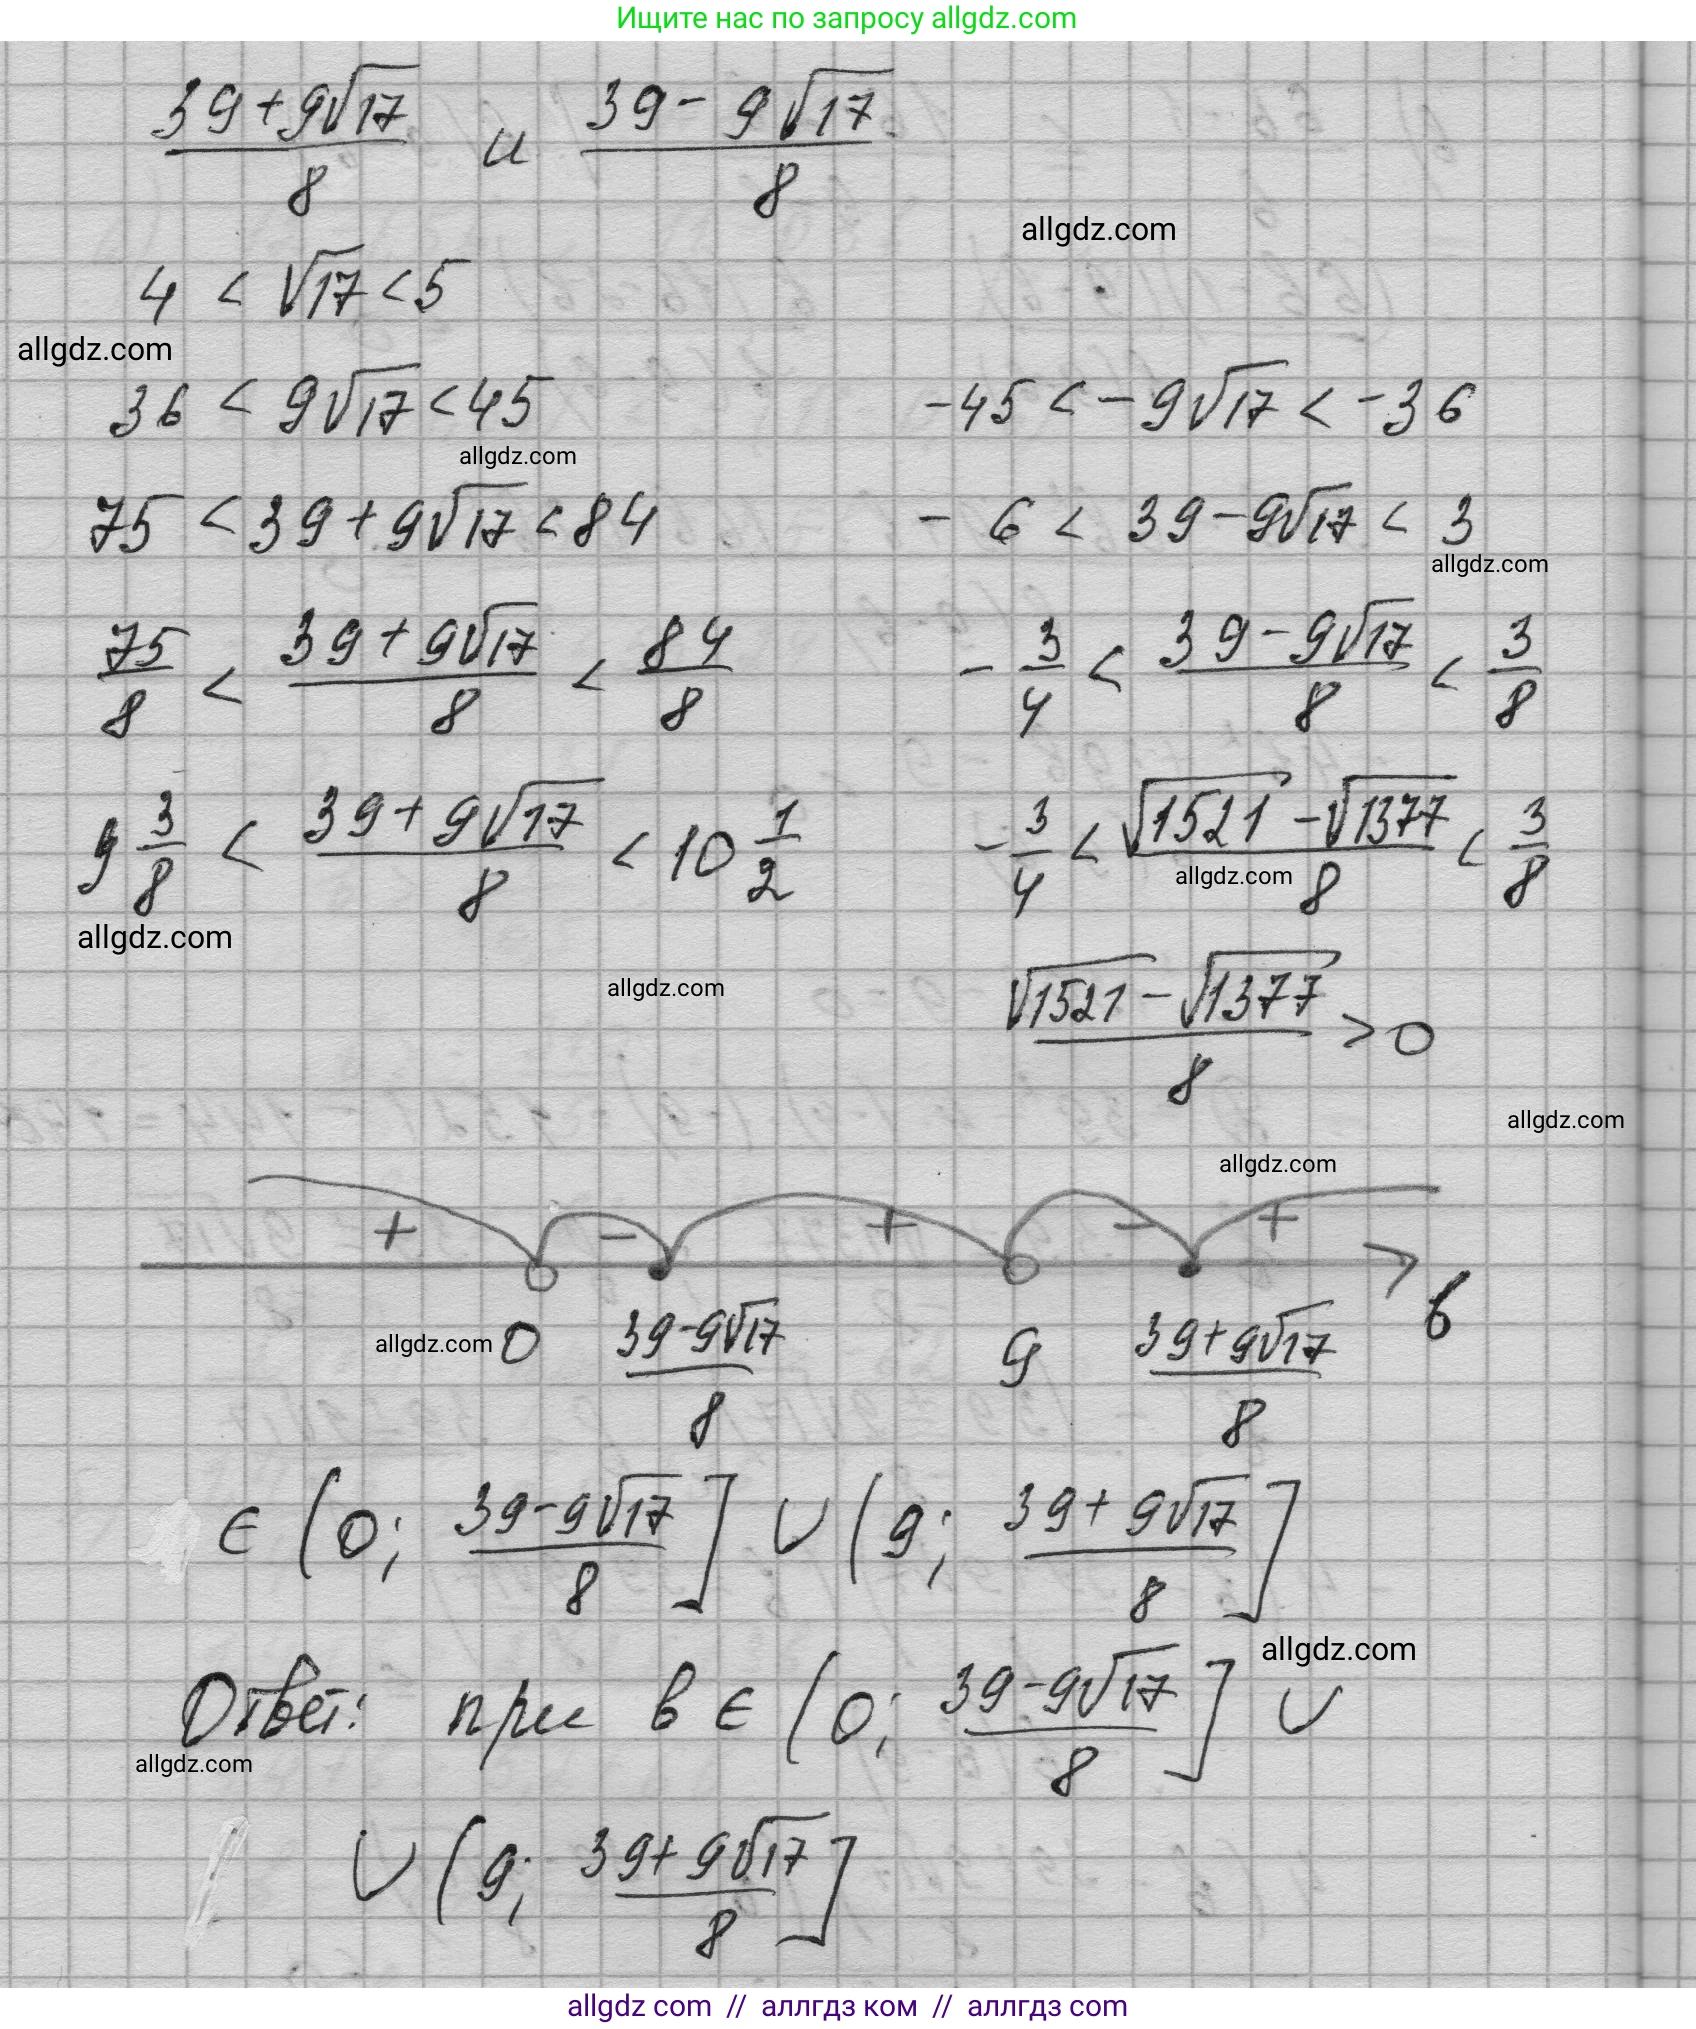 Ищите нас по запросу allgdz.com
(39+9√17)/8 и (39-9√17)/8
allgdz.com
4 < √17 < 5
allgdz.com
36 < 9√17 < 45   -45 < -9√17 < -36
allgdz.com
75 < 39+9√17 < 84   -6 < 39-9√17 < 3
allgdz.com
75/8 < (39+9√17)/8 < 84/8   -3/4 < (39-9√17)/8 < 3/8
9 3/8 < (39+9√17)/8 < 10 1/2   -3/4 < (√1521-√1377)/8 < 3/8
allgdz.com
allgdz.com
allgdz.com
(√1521-√1377)/8 > 0
allgdz.com
allgdz.com
+ - + - +
allgdz.com 0 (39-9√17)/8 9 (39+9√17)/8 в
∈ (0; (39-9√17)/8] ∪ (9; (39+9√17)/8]
allgdz.com
Ответ: при в ∈ (0; (39-9√17)/8] ∪
allgdz.com
∪ (9; (39+9√17)/8]
allgdz com // аллгдз ком // аллгдз com